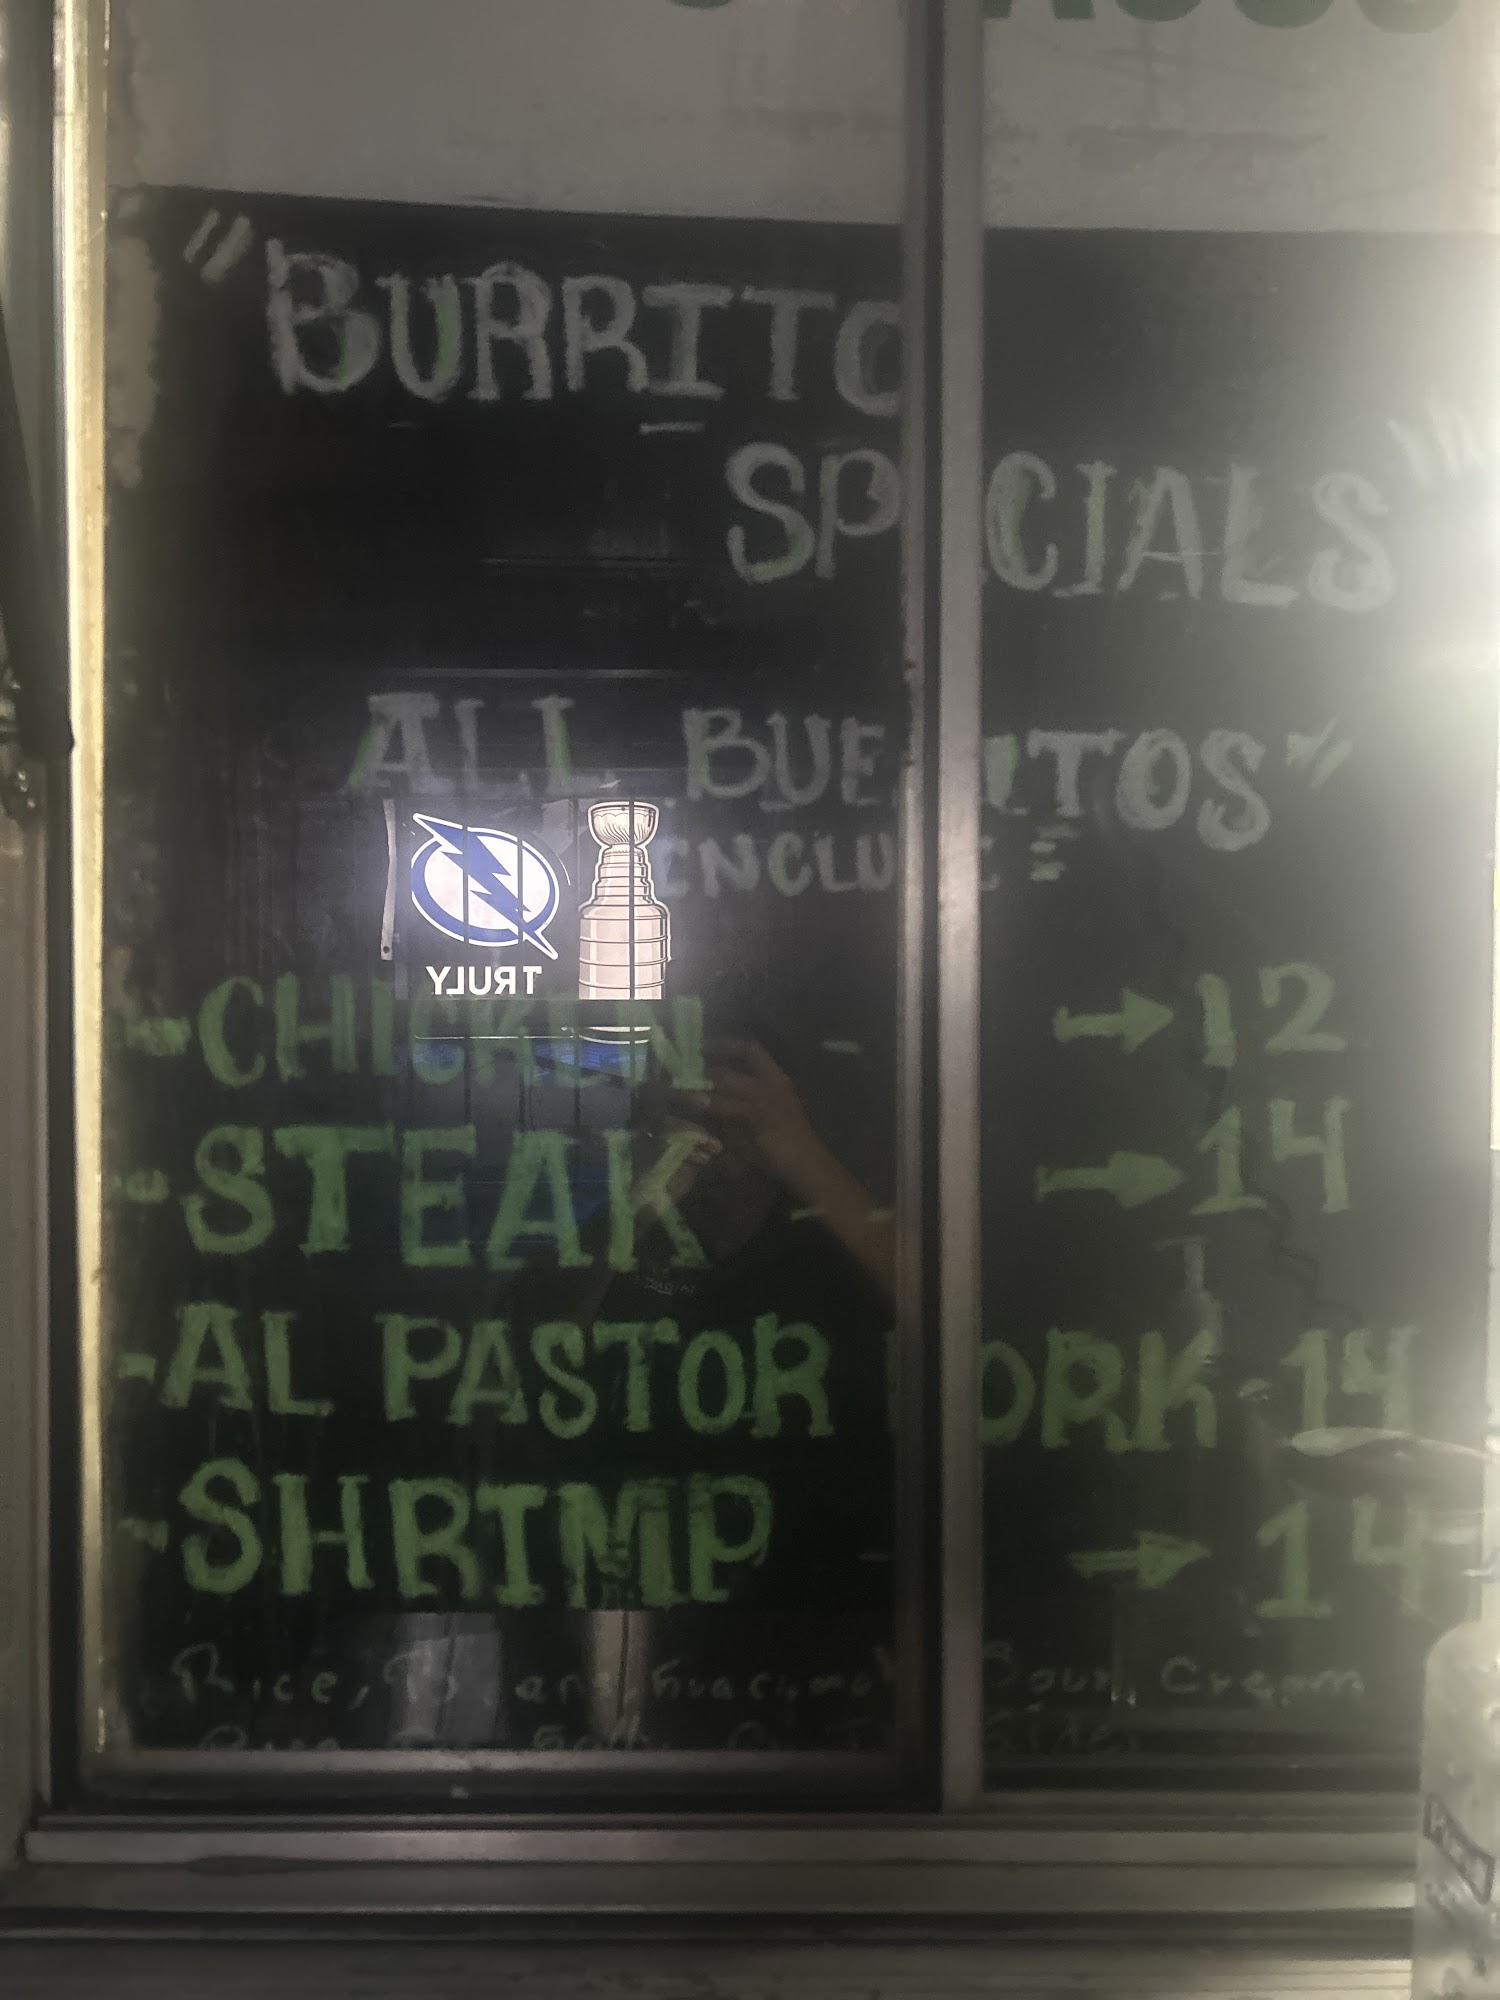 "BURRITO
SPCIALS"
ALL BUE ITOS"
ENCLU E
TRULY
-CHICKEN - → 12
-STEAK - → 14
-AL PASTOR ORK - 14
-SHRIMP - → 14
Rice, Sour Cream